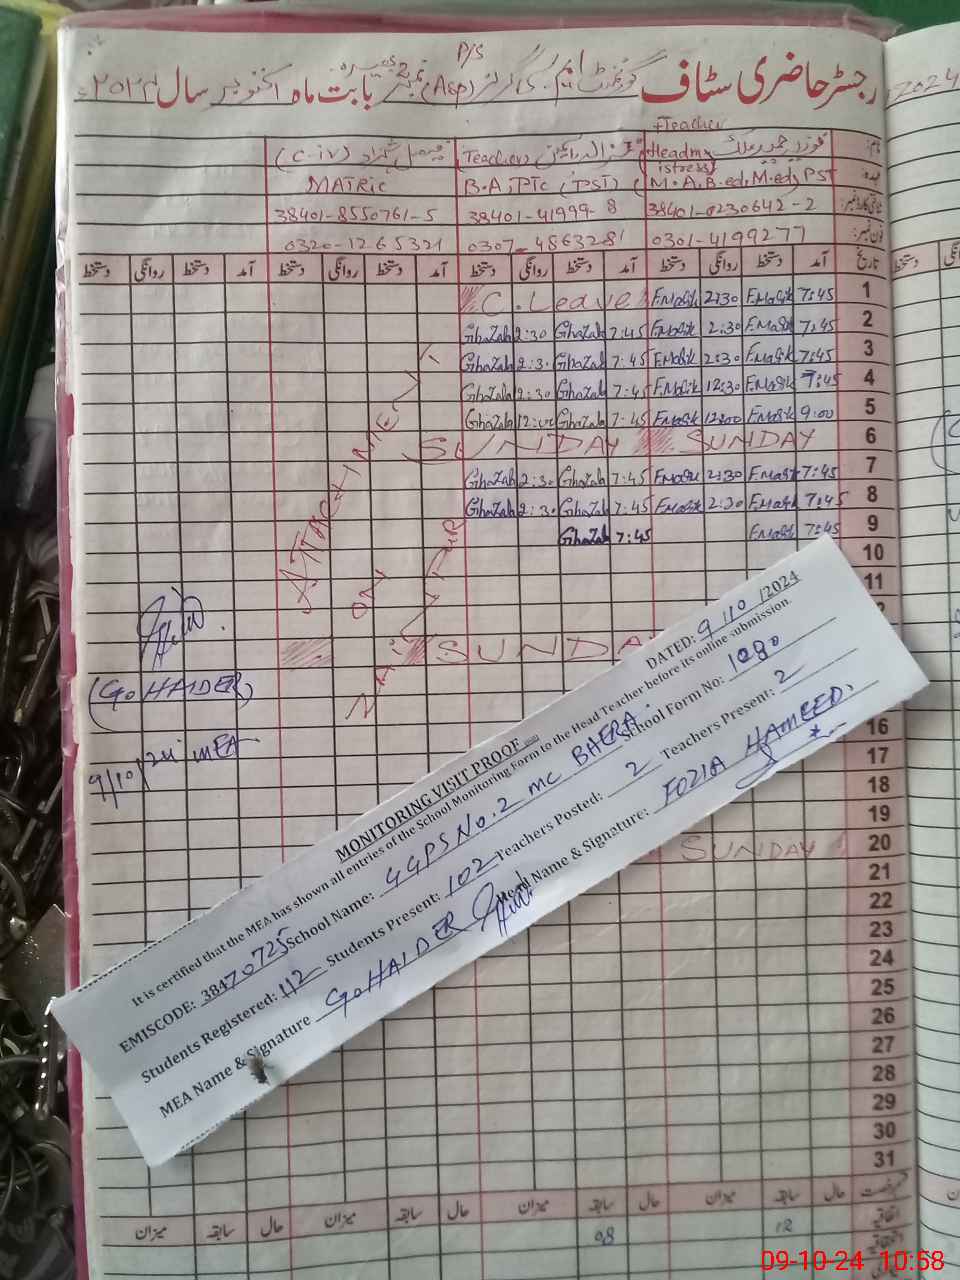 P/S
رجسٹر حاضری سٹاف گورنمنٹ ایم سی گرلز (Asp) نمبر 2 بابت ماہ اکتوبر سال ۲۰۲۴ء
2024
Teacher
(C-iv) Teacher (Headmistress)
MATRic B.A, PTC (PST) M.A, B.ed, M.ed, PST
38401-8550761-5 38401-41999-8 38401-0230642-2
0320-1265321 0307-4863281 0301-4199277
دستخط روانگی دستخط آمد دستخط روانگی دستخط آمد دستخط روانگی دستخط آمد دستخط روانگی دستخط آمد تاریخ
C. Leave F.Malik 2:30 F.Malik 7:45 1
Ghazala 2:30 Ghazala 7:45 F.Malik 2:30 F.Malik 7:45 2
Ghazala 2:30 Ghazala 7:45 F.Malik 2:30 F.Malik 7:45 3
Ghazala 2:30 Ghazala 7:45 F.Malik 12:30 F.Malik 7:45 4
Ghazala 12:00 Ghazala 7:45 F.Malik 12:00 F.Malik 9:00 5
SUNDAY SUNDAY 6
Ghazala 2:30 Ghazala 7:45 F.Malik 2:30 F.Malik 7:45 7
Ghazala 2:30 Ghazala 7:45 F.Malik 2:30 F.Malik 7:45 8
Ghazala 7:45 F.Malik 7:45 9
10
11
SUNDA
16
17
18
19
SUNDAY 20
21
22
23
24
25
26
27
28
29
30
31
(G. HAIDER)
9/10/24 MEA
MONITORING VISIT PROOF DATED: 9/10/2024
It is certified that the MEA has shown all entries of the School Monitoring Form to the Head Teacher before its online submission.
EMISCODE: 38470725 School Name: GGPS No.2 MC BHERA. School Form No: 1080
Students Registered: 112 Students Present: 102 Teachers Posted: 2 Teachers Present: 2
MEA Name & Signature G. HAIDER Head Name & Signature: FOZIA HAMEED.
میزان سابقہ حال میزان سابقہ حال میزان سابقہ حال میزان سابقہ حال
08 12
09-10-24 10:58